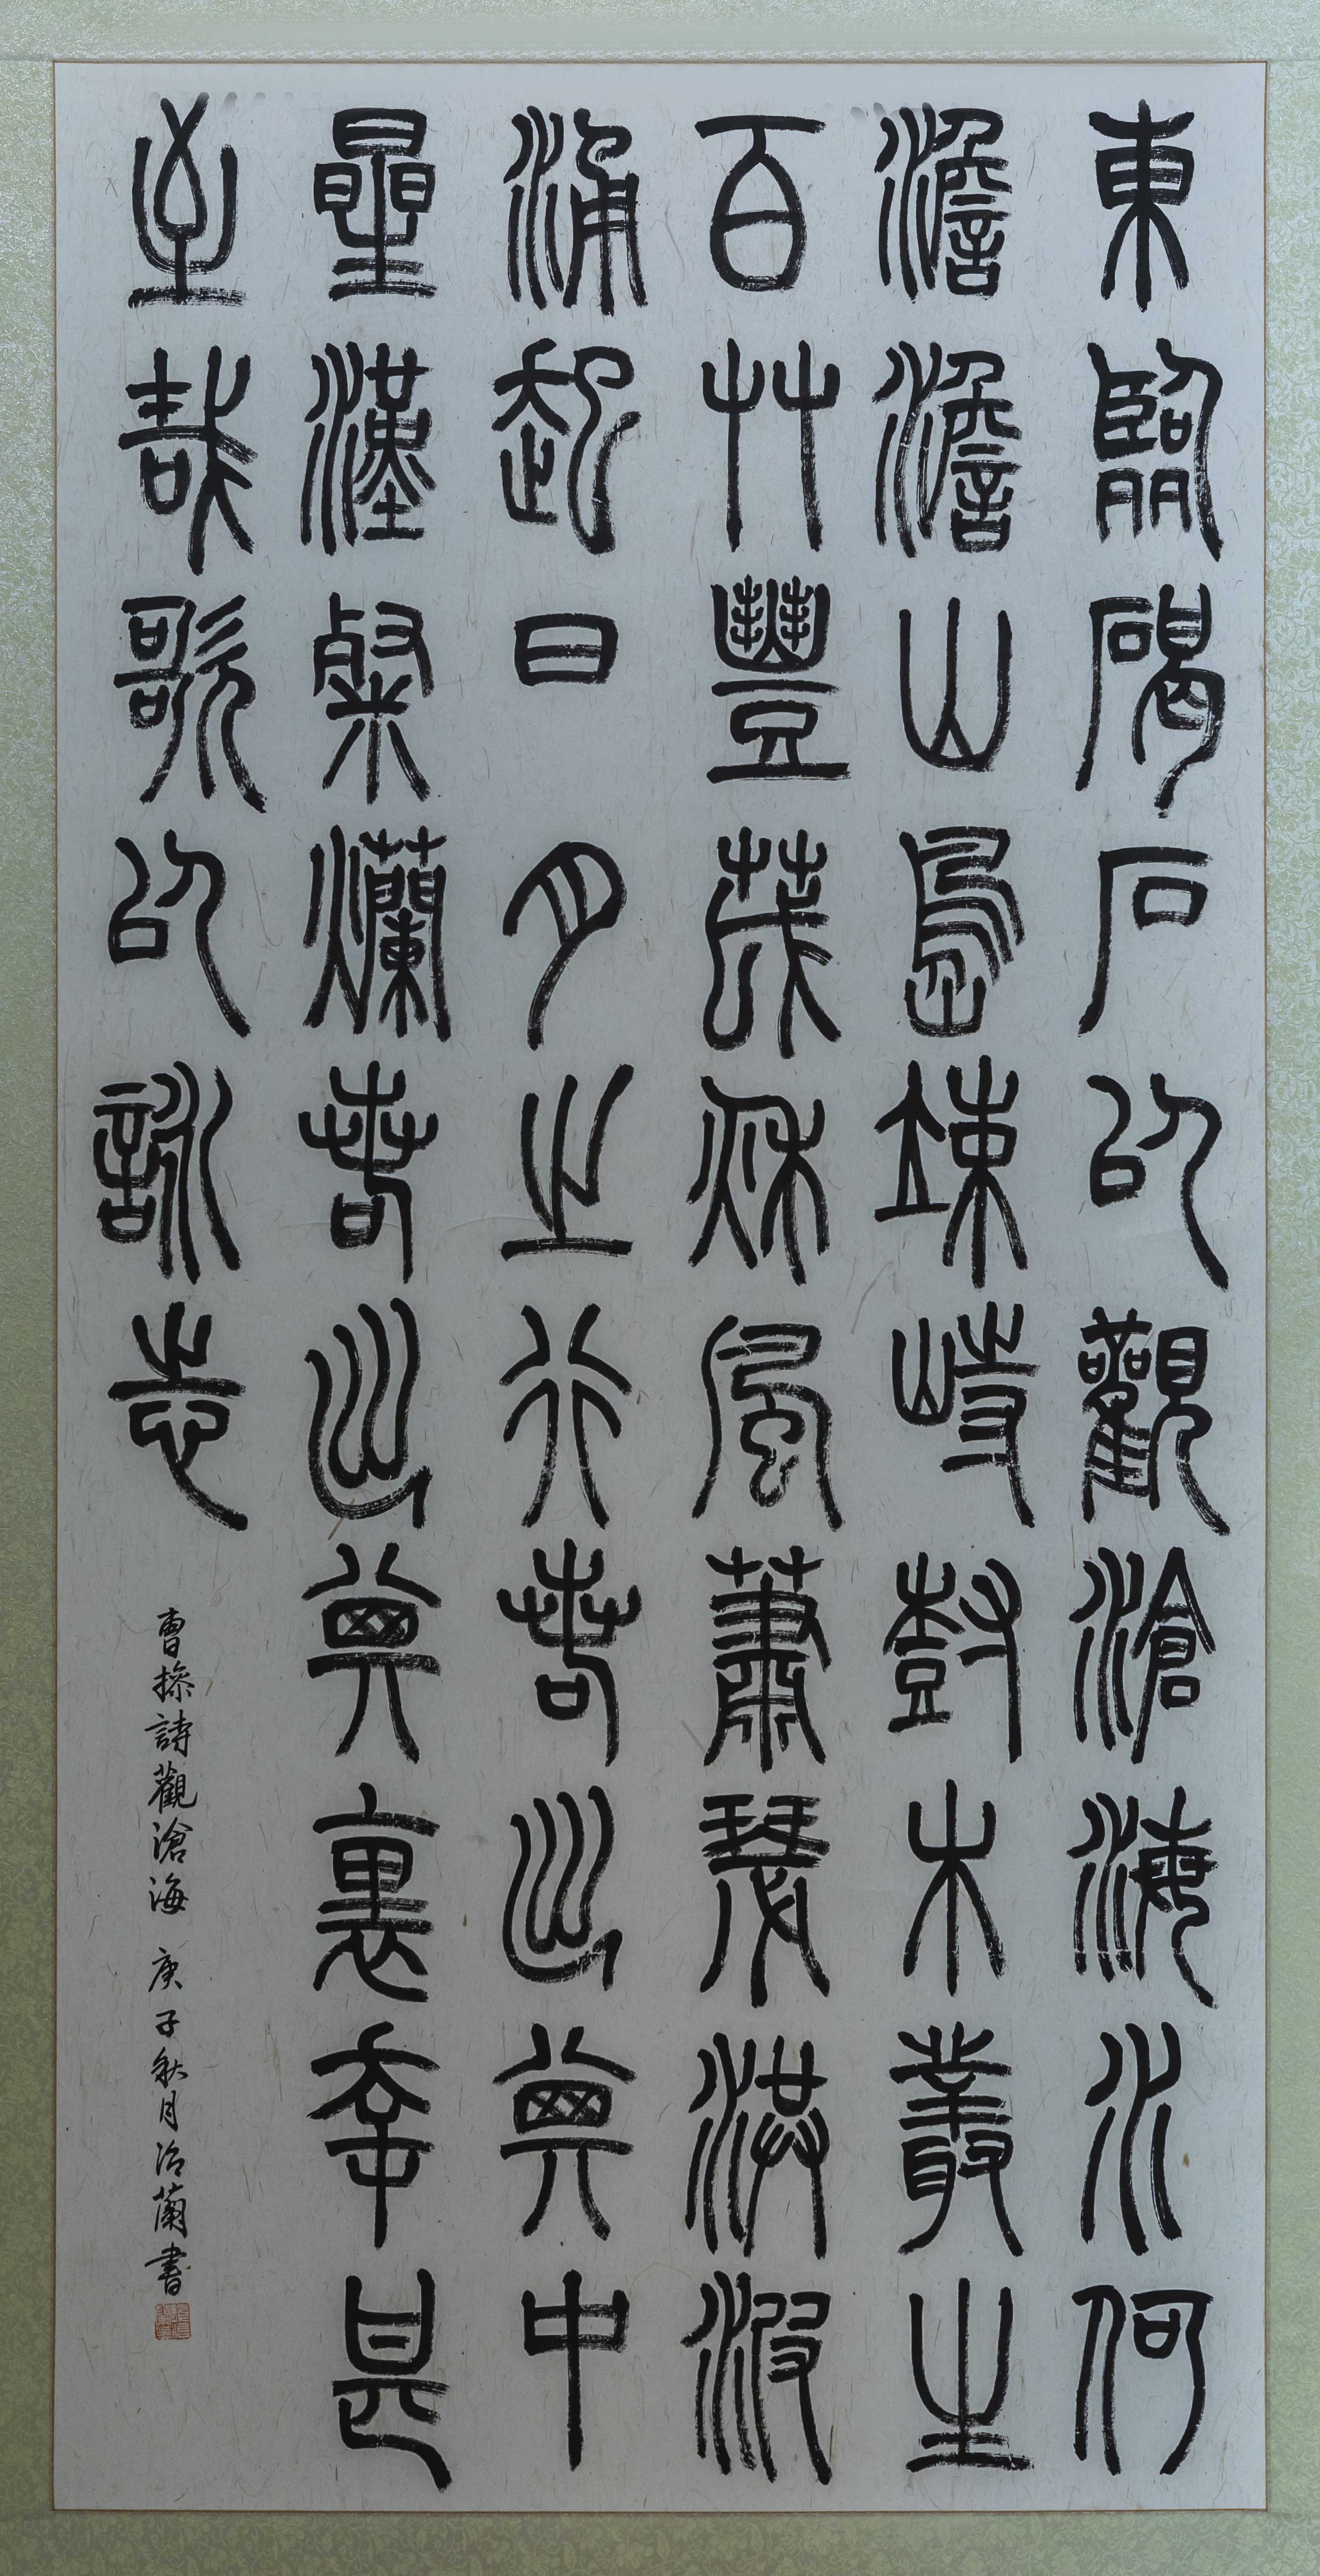 東臨碣石以觀滄海水何
澹澹山島竦峙樹木叢生
百艸豐茂秋風蕭瑟洪波
涌起日月之行若出其中
星漢粲爛若出其裏幸甚
至哉歌以詠志
曹操詩觀滄海 庚子秋月治蘭書